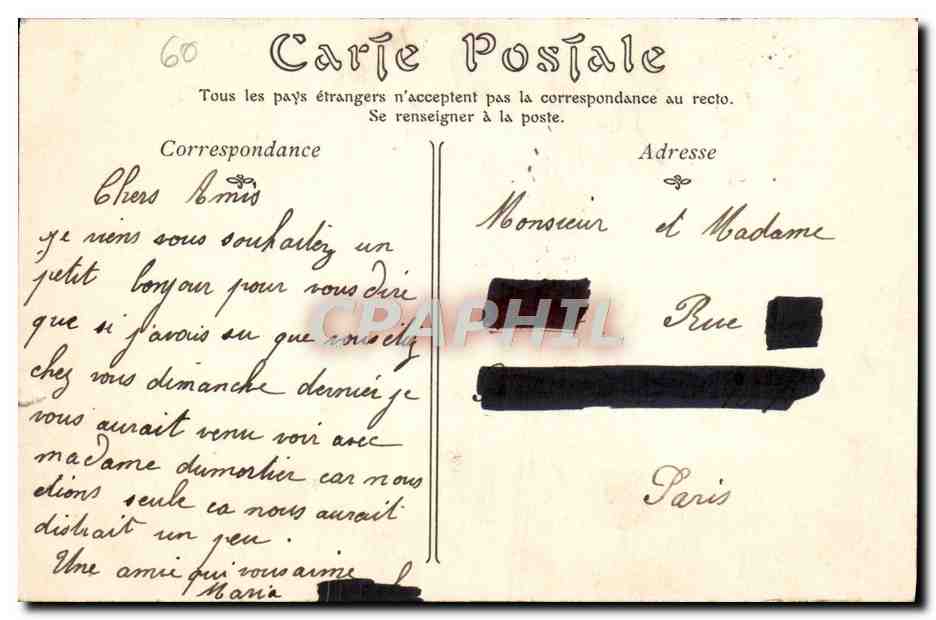 60
Carte Postale
Tous les pays étrangers n'acceptent pas la correspondance au recto.
Se renseigner à la poste.
Correspondance
Chers Amis
je viens vous souhaitez un
petit bonjour pour vous dire
que si j'avais su que vous etiez
chez vous dimanche dernier je
vous aurait venu voir avec
madame dumortier car nous
etions seule ca nous aurait
distrait un peu.
Une amie qui vous aime
Maria
Adresse
Monsieur et Madame
Rue
Paris
CPAPHIL